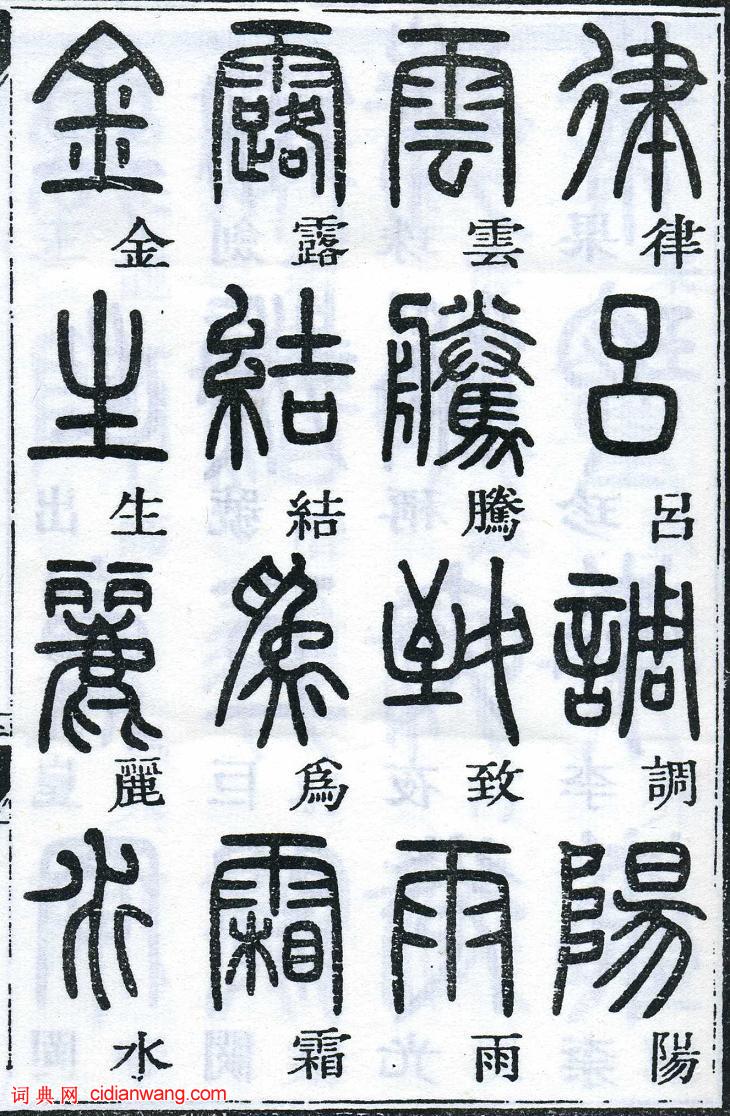 律律呂呂調調陽陽
雲雲騰騰致致雨雨
露露結結爲爲霜霜
金金生生麗麗水水
词典网 cidianwang.com